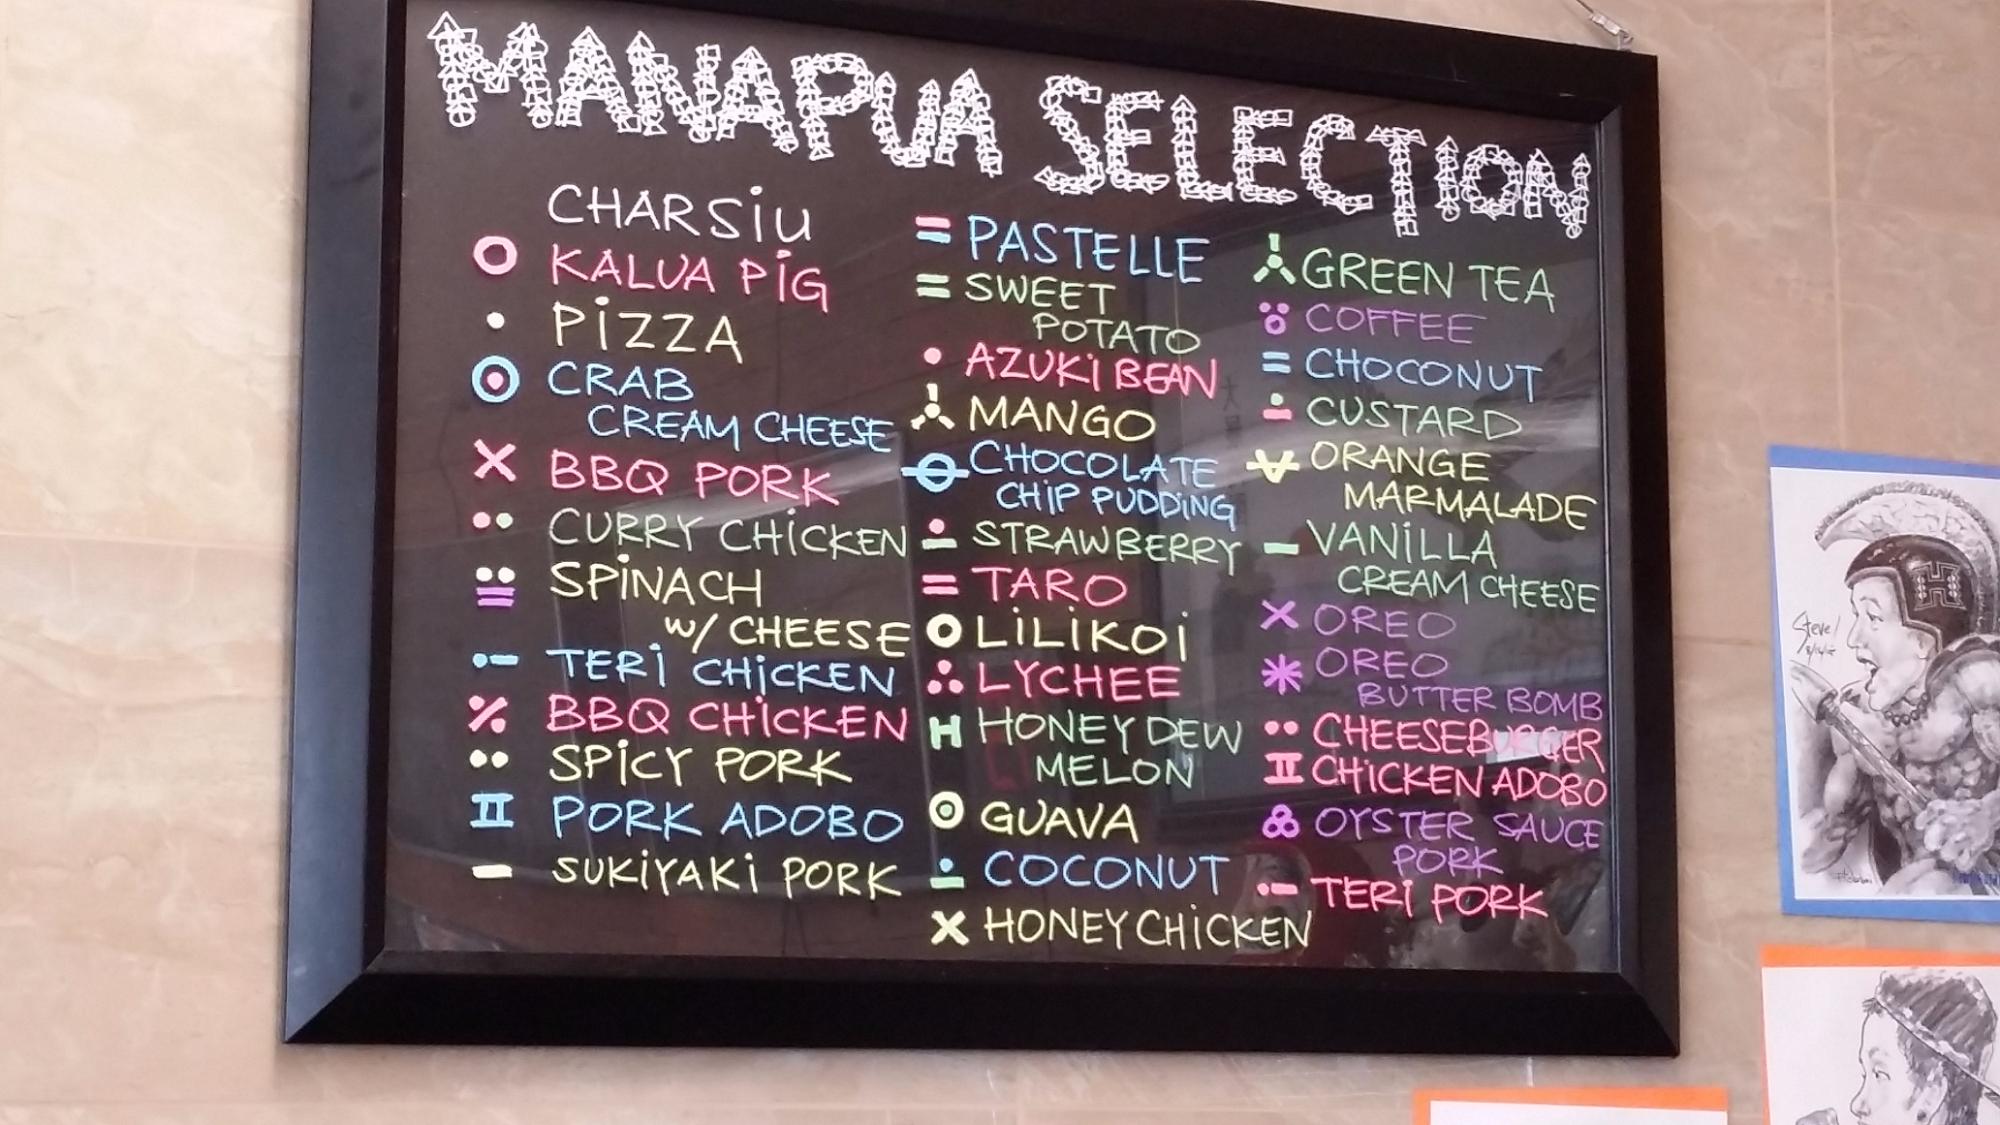 MANAPUA SELECTION
CHARSiU
KALUA PiG
PiZZA
CRAB
CREAM CHEESE
BBQ PORK
CURRY CHiCKEN
SPiNACH
W/ CHEESE
TERi CHiCKEN
BBQ CHiCKEN
SPiCY PORK
PORK ADOBO
SUKiYAKi PORK
PASTELLE
SWEET
POTATO
AZUKi BEAN
MANGO
CHOCOLATE
CHIP PUDDiNG
STRAWBERRY
TARO
LiLiKOi
LYCHEE
HONEY DEW
MELON
GUAVA
COCONUT
HONEY CHiCKEN
GREEN TEA
COFFEE
CHOCONUT
CUSTARD
ORANGE
MARMALADE
VANiLLA
CREAM CHEESE
OREO
OREO
BUTTER BOMB
CHEESEBURGER
CHiCKEN ADOBO
OYSTER SAUCE
PORK
TERi PORK
Steve!